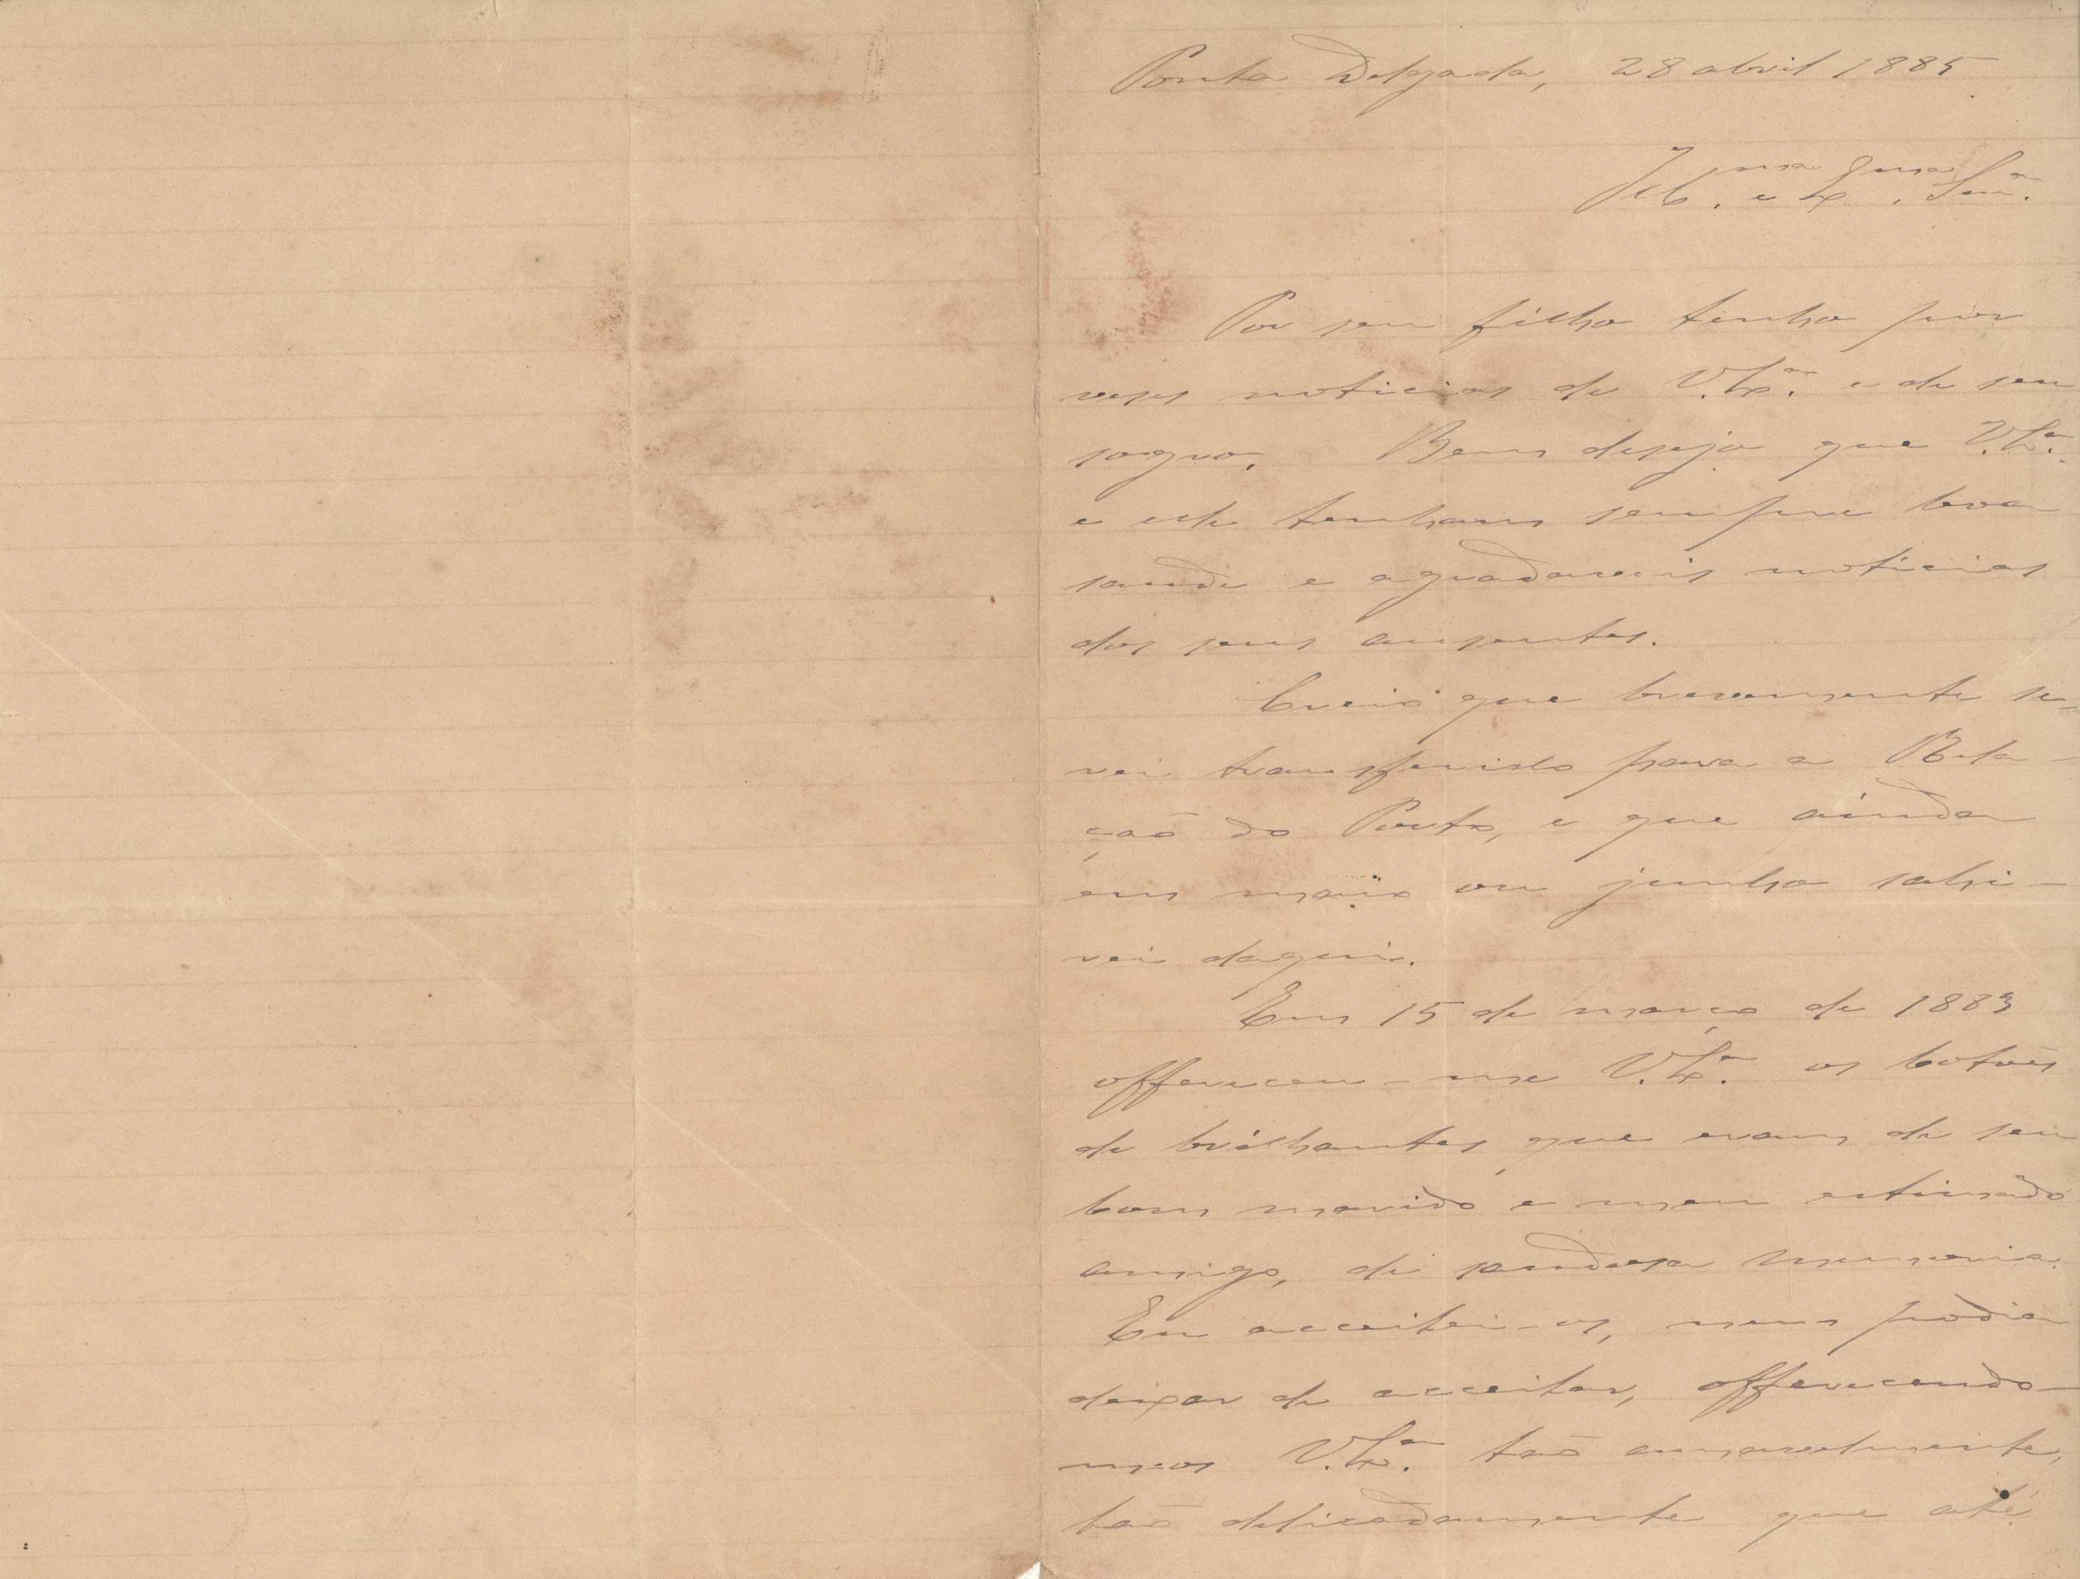 Ponta Delgada, 28 abril 1885
Ill.ma e Ex.ma Snr.a
Por seu filho tenho por
vezes noticias de V. Ex.a e de seu
sogro. Bem desejo que V. Ex.a
e elle tenham sempre boa
saude e agradaveis noticias
dos seus ausentes.
Creio que brevemente se-
rei transferido para a Rela-
ção do Porto, e que ainda
em maio ou junho sahi-
rei daqui.
Em 15 de março de 1883
offereceu-me V. Ex.a os botões
de brilhantes, que eram de seu
bom marido e meu estimado
amigo, de saudosa memoria.
Eu acceitei-os, nem podia
deixar de acceitar, offerecendo-
m'os V. Ex.a tão amavelmente,
tão delicadamente que até